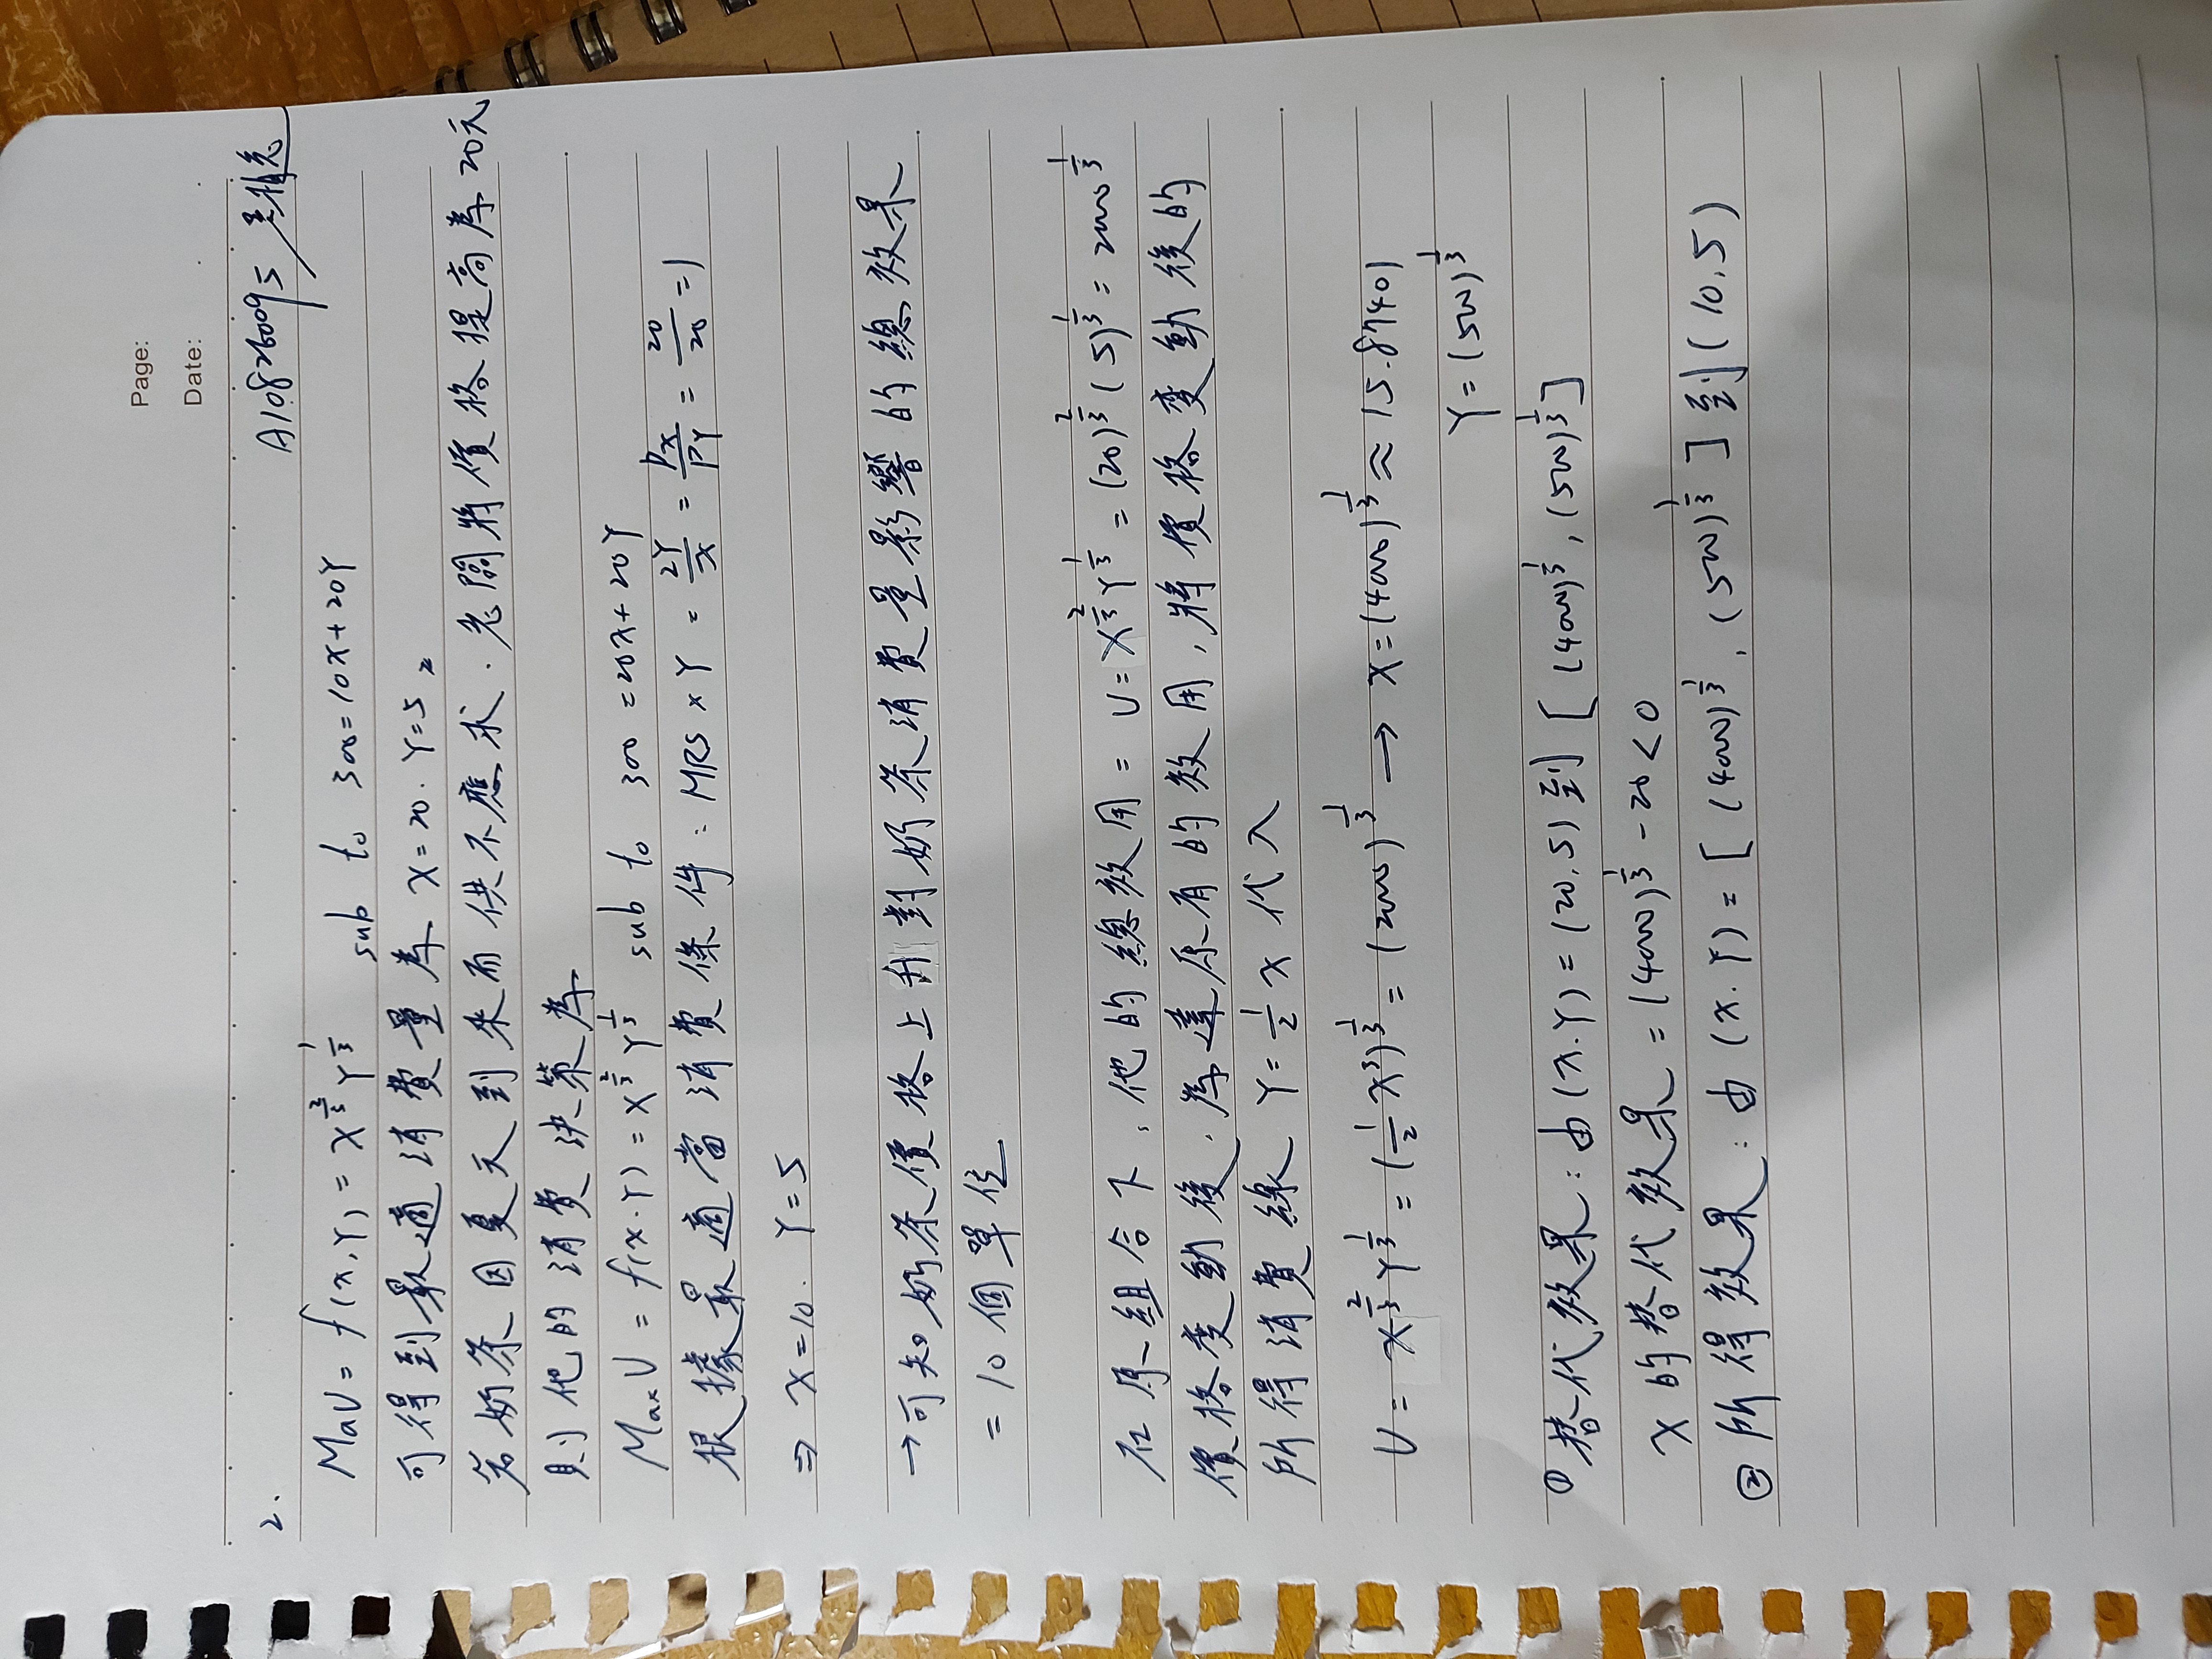 Page:
Date:
2.
A108260095
MaU = f(x,Y) = X^{2/3} Y^{1/3} sub to 300=10X+20Y
可得到最適消費量為 X=20. Y=5。
若奶茶因夏天到來而供不應求.老闆將價格提高為20元
則他的消費決策為
Max U = f(x.Y) = X^{2/3} Y^{1/3} sub to 300 =20X+20Y
根據最適當消費條件:MRS x Y = 2Y/X = Px/PY = 20/20 =1
⇒ X=10. Y=5
→可知奶茶價格上升對奶茶消費量影響的總效果
= 10個單位
在原組合下,他的總效用= U=X^{2/3}Y^{1/3} = (20)^{2/3} (5)^{1/3} = 2000^{1/3}
價格變動後,為達原有的效用,將價格變動後的
所得消費線 Y=1/2 X 代入
U = X^{2/3} Y^{1/3} = (1/2 X³)^{1/3} = (2000)^{1/3} → X=(4000)^{1/3} ≈ 15.87401
Y=(500)^{1/3}
①替代效果:由(X.Y)=(20,5)到[(4000)^{1/3},(500)^{1/3}]
X的替代效果=(4000)^{1/3} -20<0
②所得效果:由(X.Y)=[(4000)^{1/3},(500)^{1/3}]到(10,5)